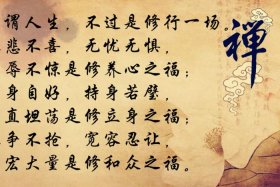 谓人生，不过是修行一场，
悲不喜，无忧无惧，
辱不惊是修养心之福；
身自好，持身若璧，
直坦荡是修立身之福；
争不抢，宽容忍让，
宏大量是修和众之福。
禅